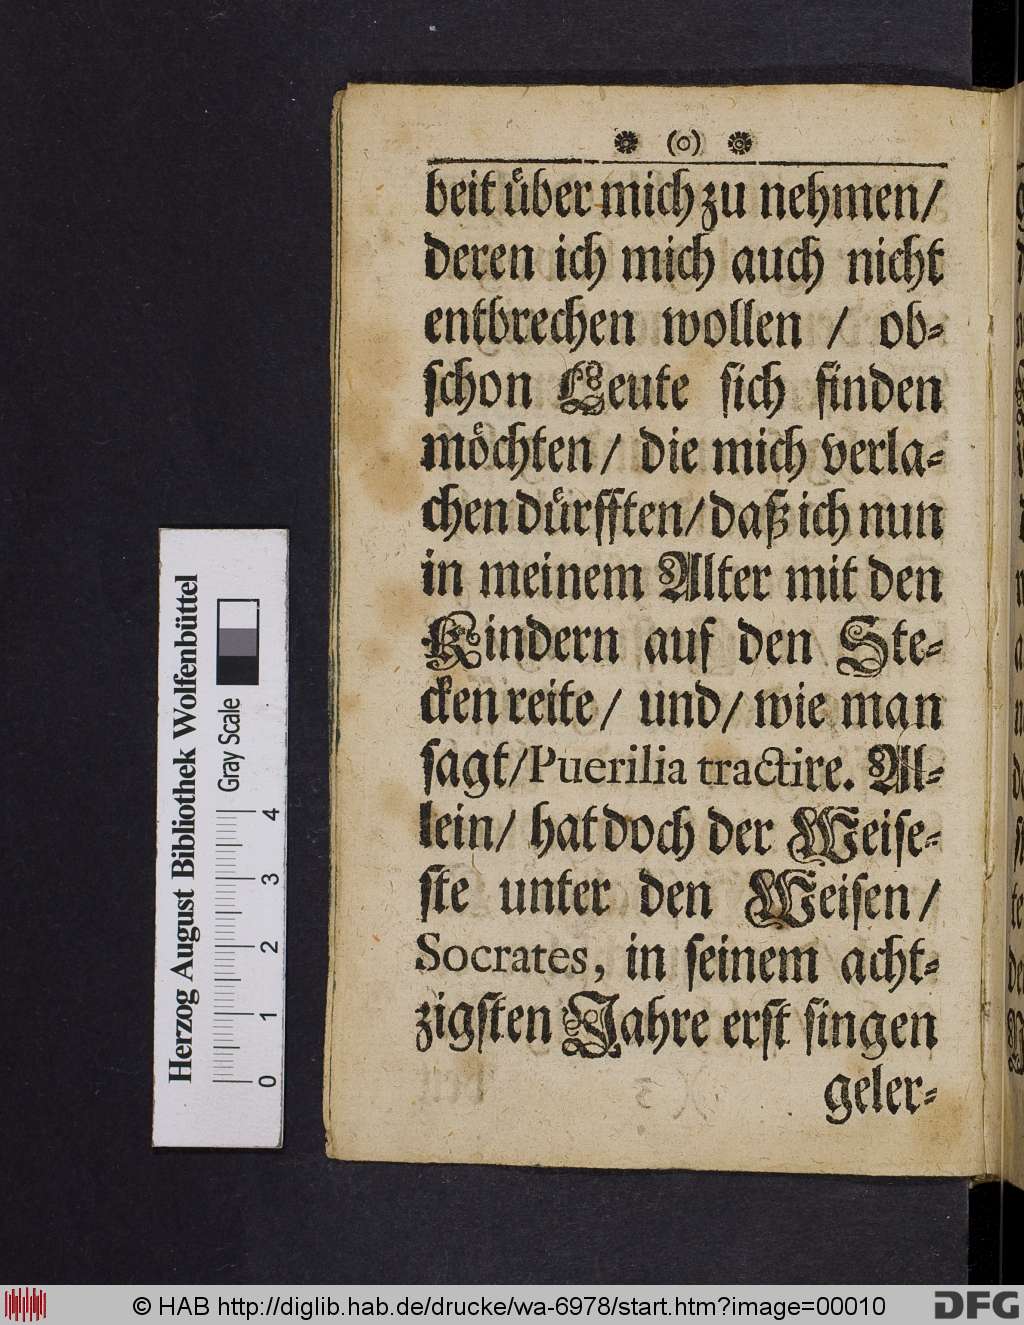 ❁ (o) ❁
beit uͤber mich zu nehmen/
deren ich mich auch nicht
entbrechen wollen / ob⸗
ſchon Leute ſich finden
moͤchten/ die mich verla⸗
chen duͤrfften/ daß ich nun
in meinem Alter mit den
Kindern auf den Ste⸗
cken reite/ und/ wie man
ſagt/ Puerilia tractire. Al⸗
lein/ hat doch der Weiſe⸗
ſte unter den Weiſen/
Socrates, in ſeinem acht⸗
zigſten Jahre erſt ſingen
geler⸗
Herzog August Bibliothek Wolfenbüttel
Gray Scale
0 1 2 3 4
© HAB http://diglib.hab.de/drucke/wa-6978/start.htm?image=00010
DFG